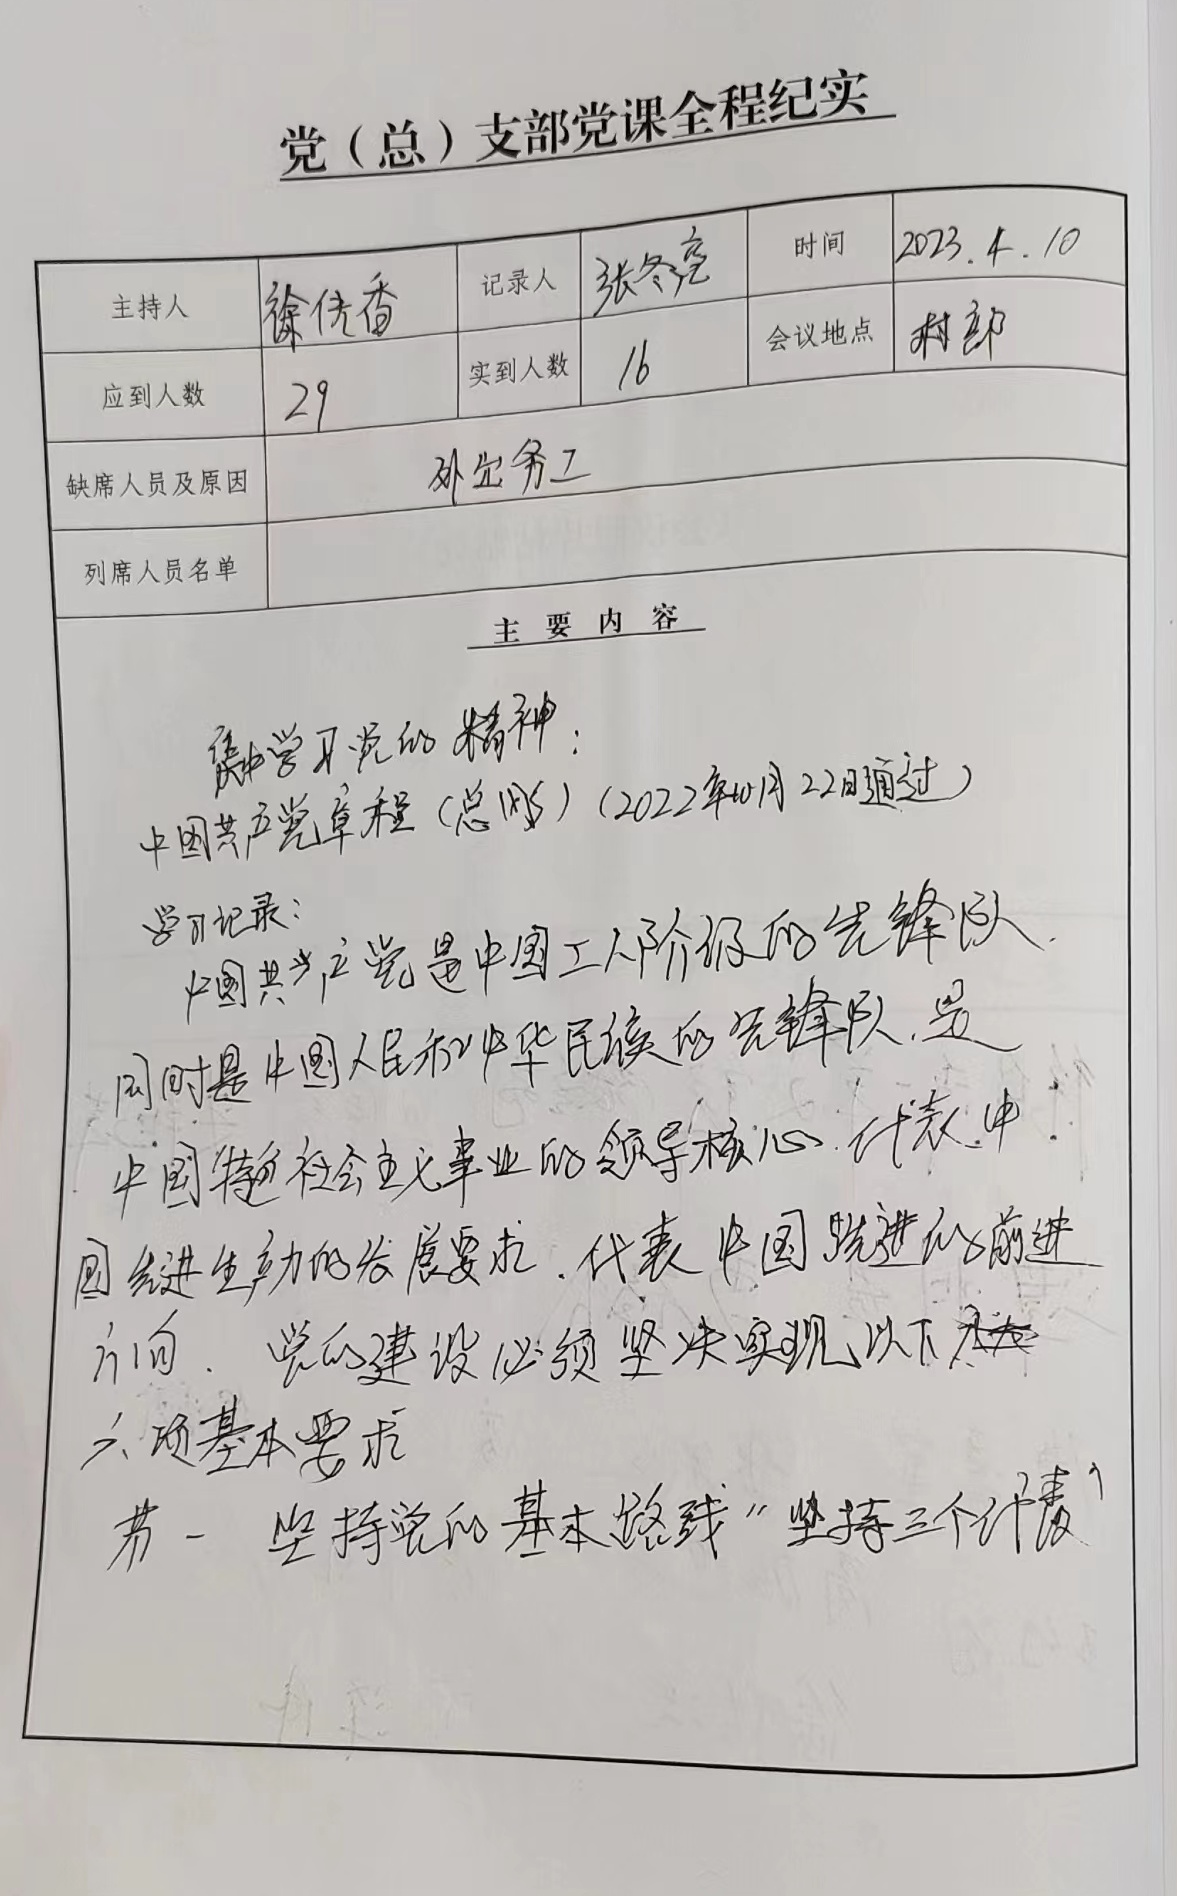 党（总）支部党课全程纪实
主持人 徐传香 记录人 张冬亮 时间 2023.4.10
应到人数 29 实到人数 16 会议地点 村部
缺席人员及原因 外出务工
列席人员名单
主要内容
集中学习党的精神：
中国共产党章程（总纲）（2022年10月22日通过）
学习记录：
中国共产党是中国工人阶级的先锋队.
同时是中国人民和中华民族的先锋队.是
中国特色社会主义事业的领导核心.代表中
国先进生产力的发展要求.代表中国先进的前进
方向.党的建设必须坚决实现以下
六项基本要求
第一 坚持党的基本路线"坚持三个代表"